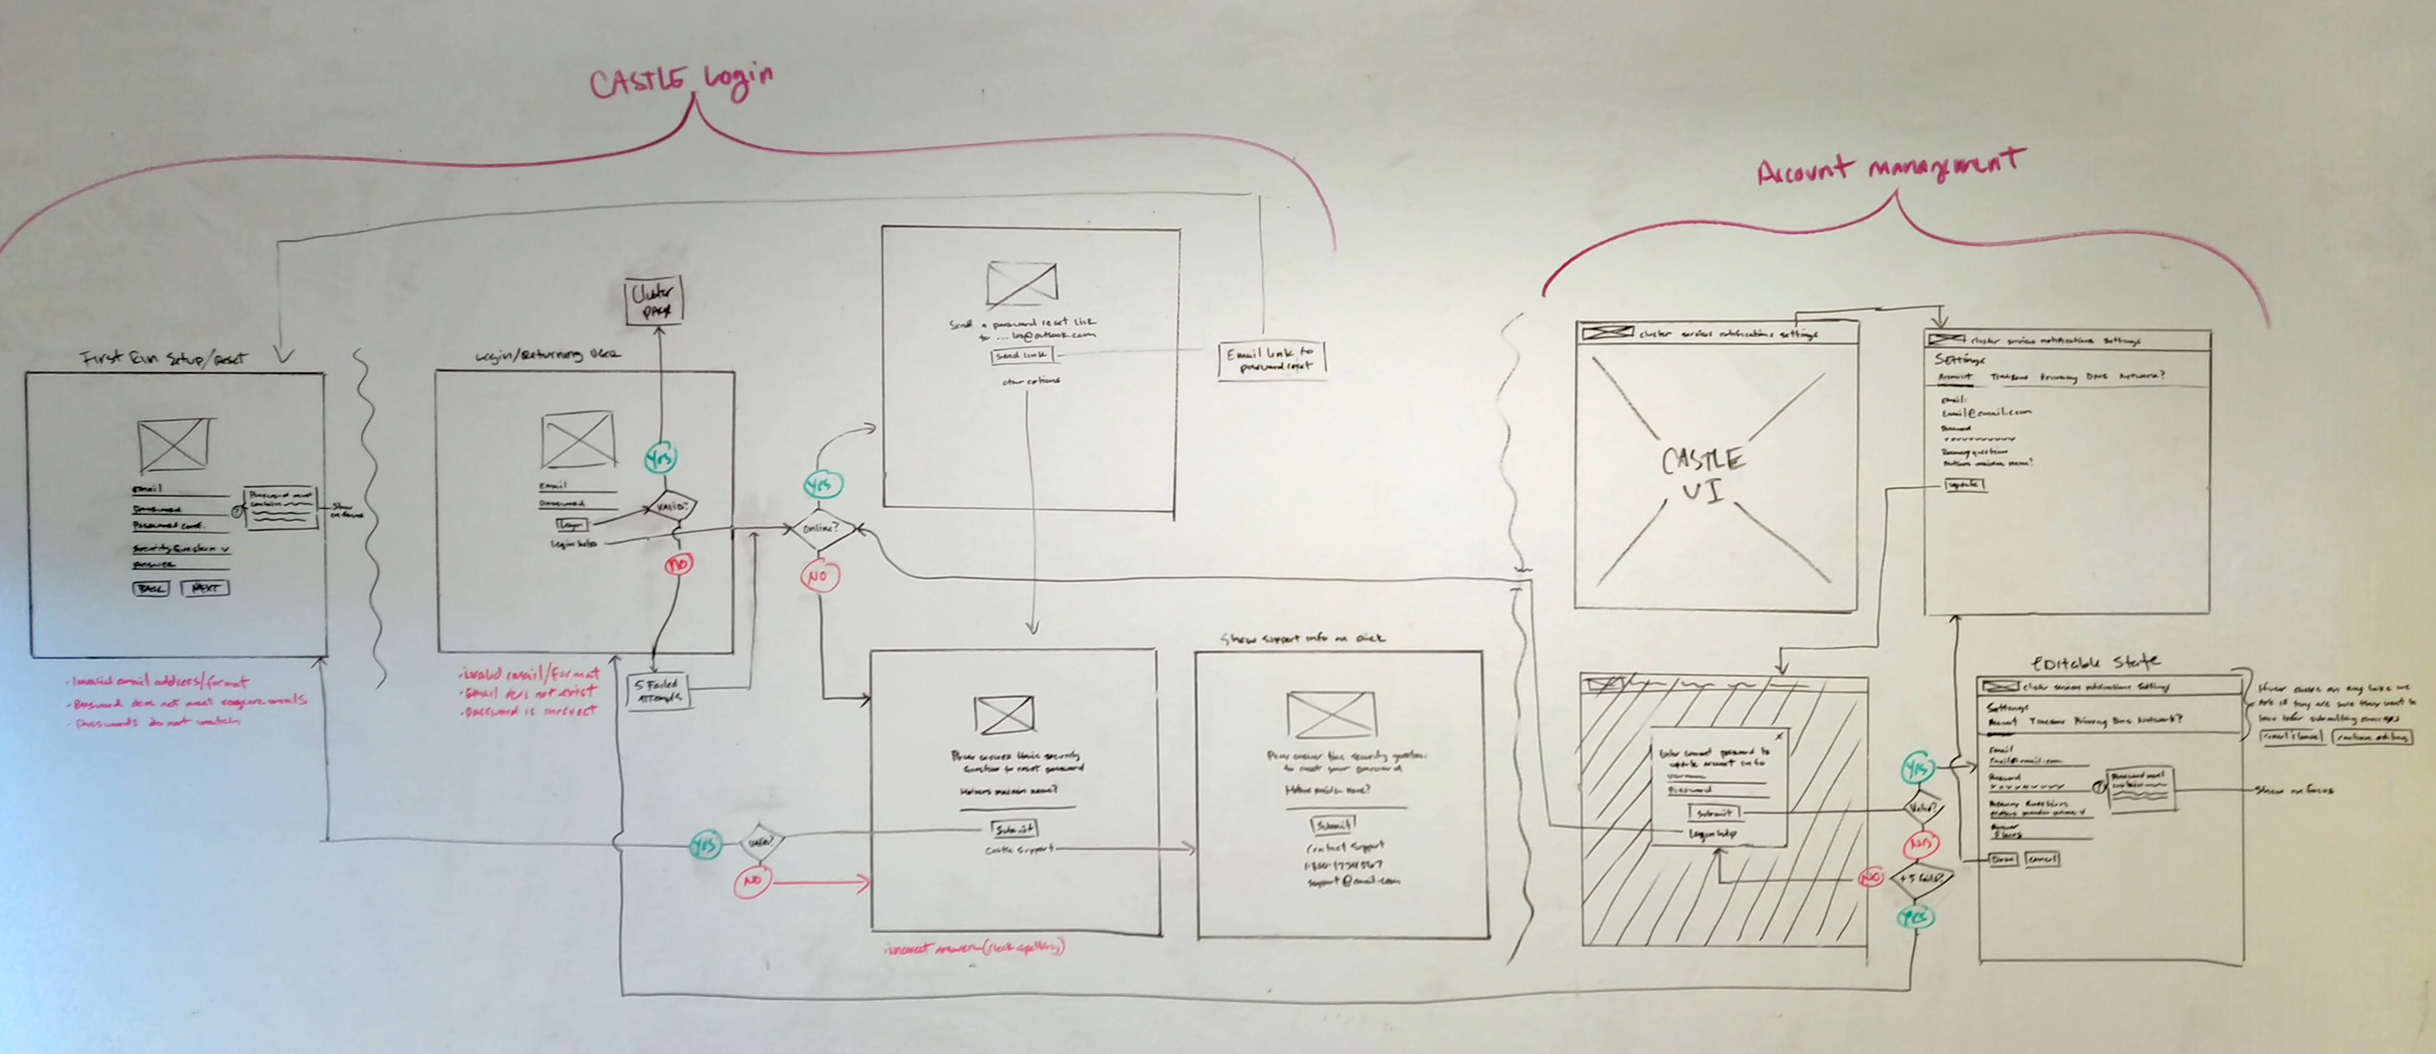 CASTLE Login
Account management
First Run Setup/reset
Email
Password
Password conf.
Security Question
Answer
BACK
NEXT
Password must
contain
Show
on focus
· Invalid email address/format
· Password does not meet requirements
· Passwords do not match
Login/Returning User
Cluster
page
Yes
Email
Password
Login
Valid?
Login help
NO
5 Failed
Attempts
· invalid email/format
· Email does not exist
· Password is incorrect
YES
Online?
NO
Send a password reset link
to ...
@outlook.com
Send link
other options
Email link to
password reset
Please answer this security
question to reset password
Mothers maiden name?
Submit
Castle Support
YES
Valid?
NO
· incorrect answer (check spelling)
Show support info on click
Please answer this security question
to reset your password
Mothers maiden name?
Submit
Contact Support
support@email.com
cluster services notifications settings
CASTLE
UI
cluster services notifications settings
Settings
Account
Network?
email:
email@email.com
Password
Recovery question
Mothers maiden name?
update
Enter current password to
update account info
Password
Submit
Login help
x
YES
Valid?
NO
NO
+5 fails?
YES
Editable State
cluster services notifications settings
Settings
Account
Network?
Email
email@email.com
Password
Recovery Question
Mothers maiden name
Answer
cancel
Password must
contain
Show on focus
ask if they are sure they want to
continue editing